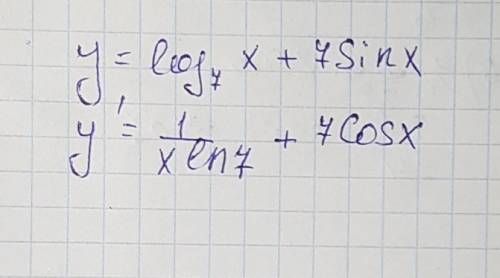 y = log₇ x + 7 sin x
y' = 1/(x ln 7) + 7 cos x